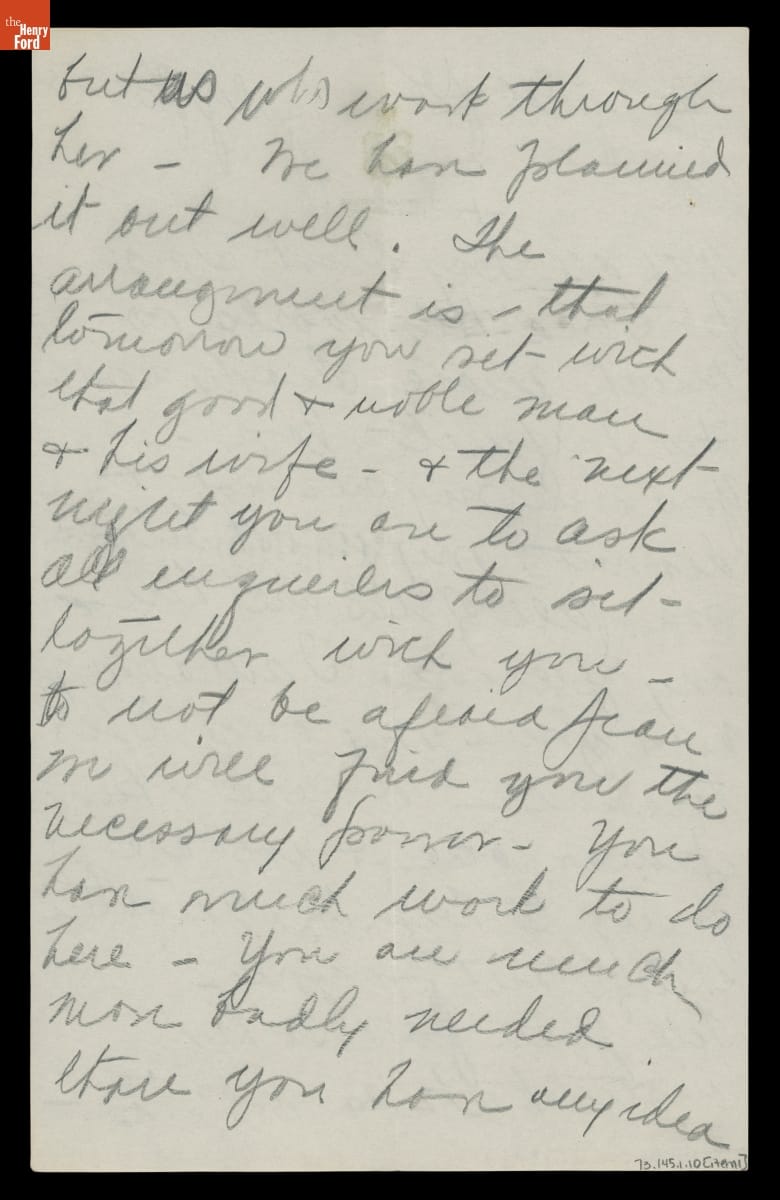 the
Henry
Ford
but us who work through
her - We have planned
it out well. The
arrangment is - that
tomorrow you sit with
that good & noble man
& his wife - & the next
night you are to ask
all enquirers to sit -
together with you -
Do not be afraid Jean
we will find you the
necessary power - You
have much work to do
here - You are much
more badly needed
than you have any idea
73.145.1.10 [item 1]